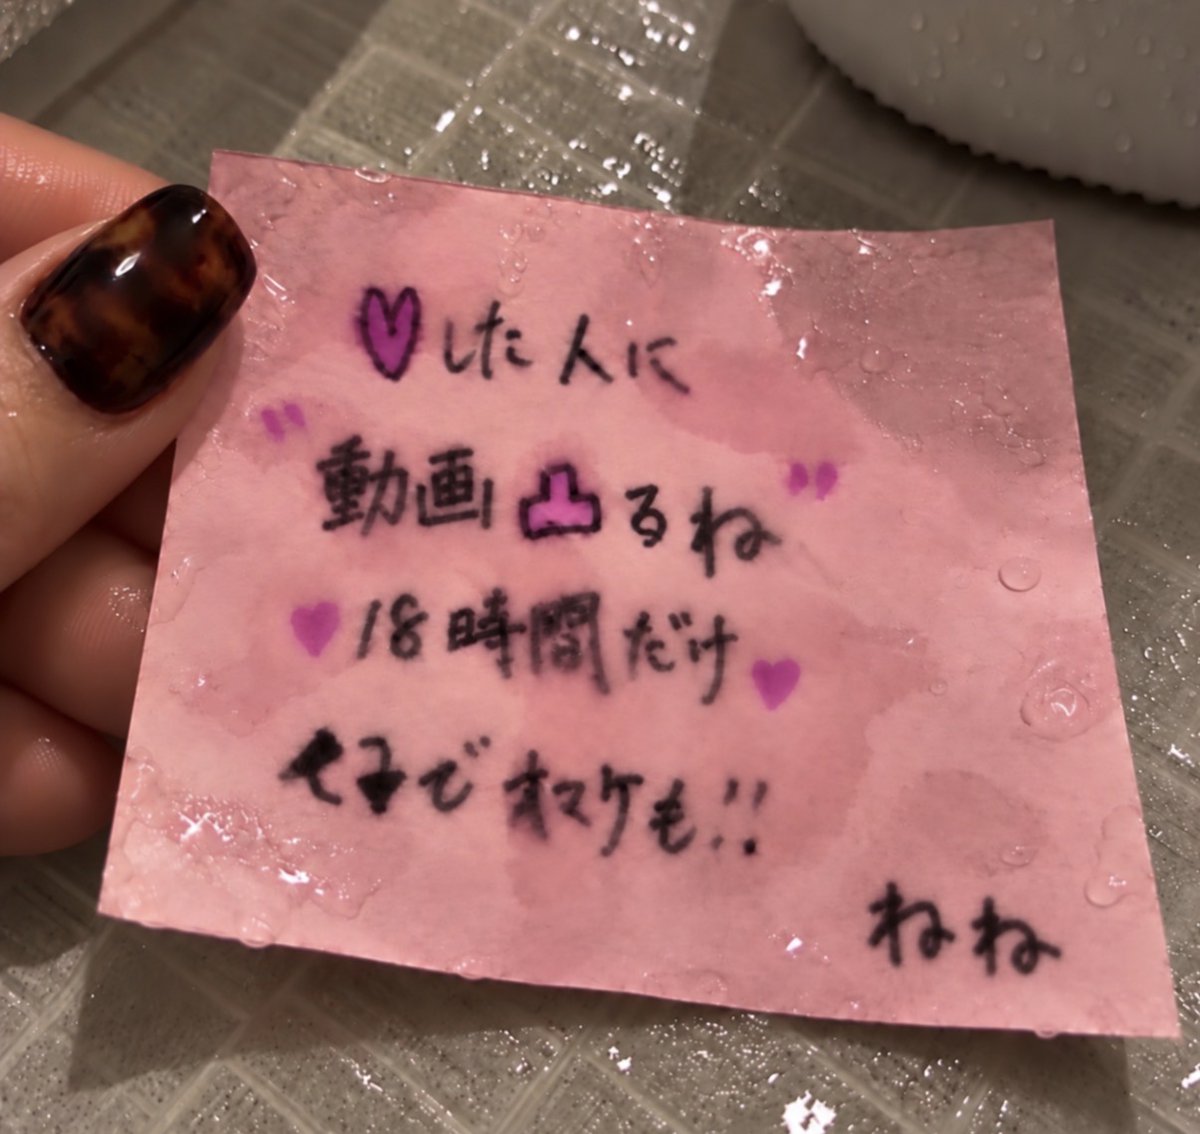 ♥した人に
"動画凸るね"
♥18時間だけ♥
でオマケも!!
ねね